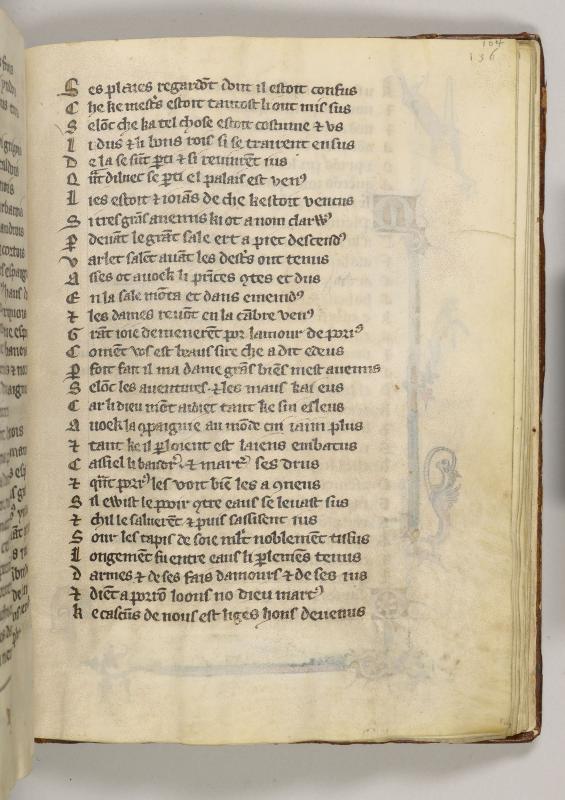 164
136
S es plaies regardōt dont il estoit confus
C he ke mestˢ estoit tantost li ont mis sus
S elōc che ka tel chose estoit costume ⁊ vs
L i dus ⁊ li bons rois si se trairent ensus
D e la se sūt ꝑti ⁊ si revinrent ius
Q nt diluec se ꝑti el palais est venꝰ
L ies estoit ⁊ ioians de che kestoit vencus
S i tresgrās anemis ki ot a nom clarꝰ
P devāt le grāt sale ert a piet descendꝰ
V arlet salēt avāt les destˢ ont tenus
A sses ot avoek li princes ꝯtes et dus
E n la sale mōta et dans emenidꝰ
⁊ les dames revōt en la cābre venꝰ
G rāt ioie demenerēt por lamour de porꝰ
C omēt vos est biaus sire che a dit edeus
P foit fait il ma dame grās biēs mest avenus
S elōc les aventures ⁊ les maus kai eus
C ar li dieu mōt aidiet tant ke sui esleus
A voek la ꝯpaignie au mōde cui iaim plus
⁊ tant ke il ꝑloient est laiens embatus
C assiel li baudˢ ⁊ martˢ ses drus
⁊ qāt porꝰ les voit biē les a ꝯneus
S il ewist le pooir ꝯtre eaus se levast sus
⁊ chil le saluerēt ⁊ puis sassisent ius
S our les tapis de soie mlt noblemēt tissus
L ongemēt fu entre eaus li ꝑlemēs tenus
D armes ⁊ de ses fais damours ⁊ de ses ius
⁊ diēt a porō loons no dieu martˢ
K e cascūs de nous est liges hons devenus